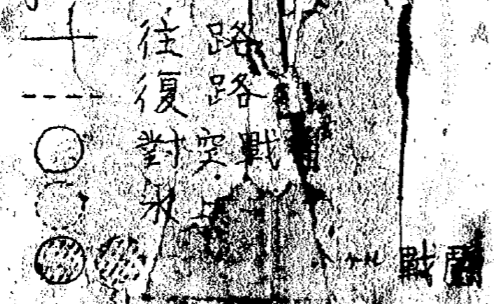 往路
復路
對空戰
水上
戰鬪